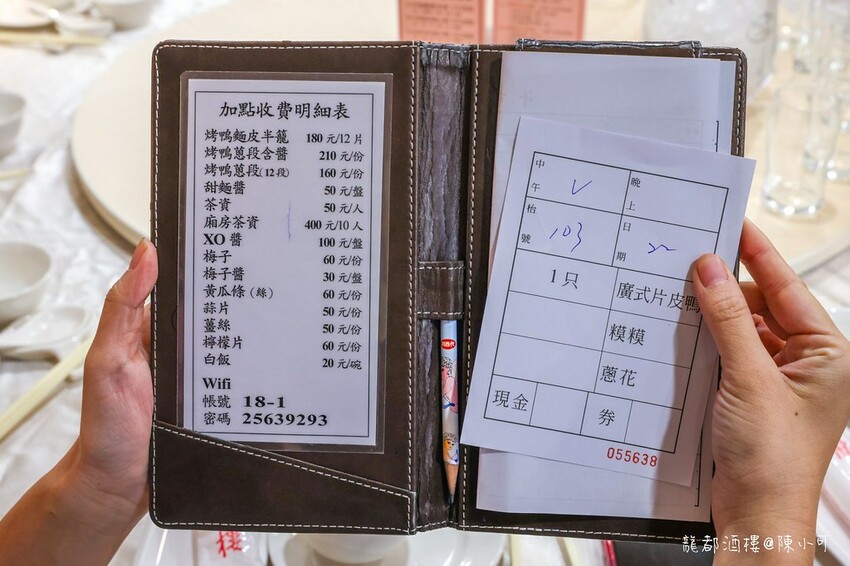 加點收費明細表
烤鴨麵皮半籠 180元/12片
烤鴨蔥段含醬 210元/份
烤鴨蔥段(12段) 160元/份
甜麵醬 50元/盤
茶資 50元/人
廂房茶資 400元/10人
XO醬 100元/盤
梅子 60元/份
梅子醬 30元/盤
黃瓜條(絲) 60元/份
蒜片 50元/份
薑絲 50元/份
檸檬片 60元/份
白飯 20元/碗
Wifi
帳號 18-1
密碼 25639293
中午 V 晚上
枱號 103 日期
1只 廣式片皮鴨
糢糢
蔥花
現金 券
055638
龍都酒樓@陳小可